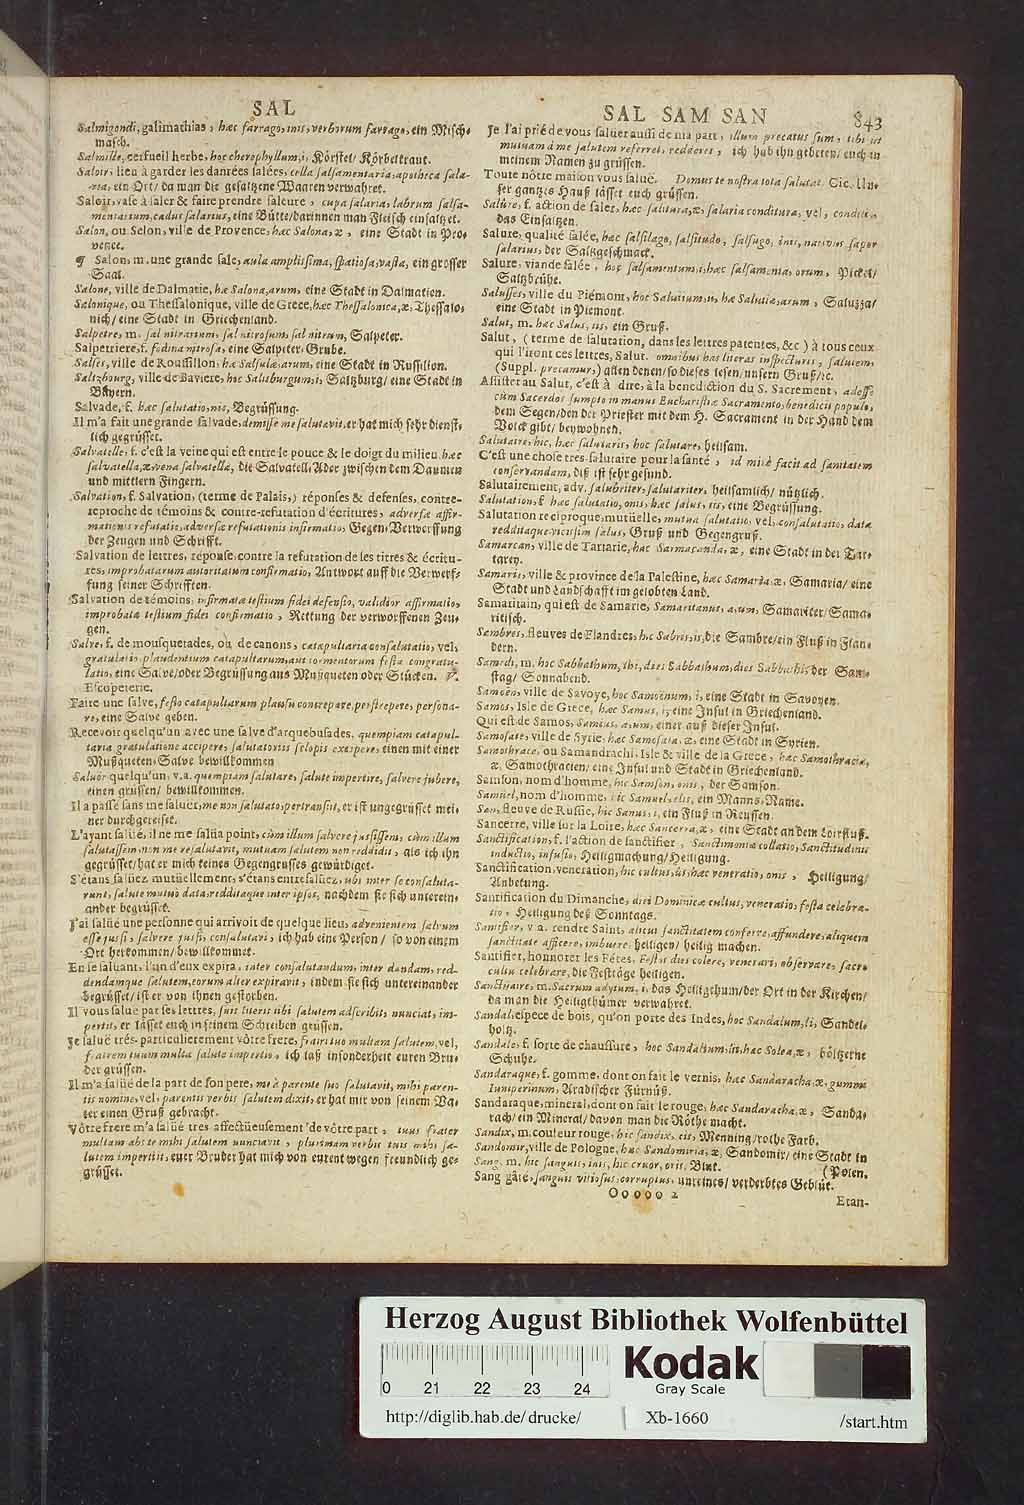 SAL
Salmigondi, galimathias, hæc farrago, inis, verborum farrago, ein Misch-
masch.
Salmille, cerfueil herbe, hoc cherophyllum, i, Körffel/ Körbelkraut.
Saloir, lieu à garder les danrées salées, cella salsamentaria, apotheca sala-
ria, ein Ort/ da man die gesaltzene Waaren verwahret.
Saloir, vase à saler & faire prendre saleure, cupa salaria, labrum salsa-
mentarium, cadus salarius, eine Bütte/ darinnen man Fleisch einsaltzet.
Salon, ou Selon, ville de Provence, hæc Salona, æ, eine Stadt in Pro-
vence.
¶ Salon, m. une grande sale, aula amplissima, spatiosa, vasta, ein grosser
Saal.
Salone, ville de Dalmatie, hæ Salonæ, arum, eine Stadt in Dalmatien.
Salonique, ou Thessalonique, ville de Grece, hæc Thessalonica, æ, Thessalo-
nich/ eine Stadt in Griechenland.
Salpetre, m. sal nitrarium, sal nitrosum, sal nitrum, Salpeter.
Salpetriere, f. fodina nitrosa, eine Salpeter-Grube.
Salses, ville de Roussillon, hæ Salsulæ, arum, eine Stadt in Russilion.
Saltzbourg, ville de Baviere, hoc Salisburgum, i, Saltzburg/ eine Stadt in
Bäyern.
Salvade, f. hæc salutatio, nis, Begrüssung.
Il m'a fait une grande salvade, demisse me salutavit, er hat mich sehr dienst-
lich gegrüsset.
Salvatelle, f. c'est la veine qui est entre le pouce & le doigt du milieu, hæc
salvatella, æ, vena salvatella, die Salvatell-Ader zwischen dem Daumen
und mittlern Fingern.
Salvation, f. Salvation, (terme de Palais,) réponses & defenses, contre-
reproche de témoins & contre-refutation d'écritures, adversæ affir-
mationis refutatio, adversæ refutationis infirmatio, Gegen-Verwerffung
der Zeugen und Schrifft.
Salvation de lettres, réponse, contre la refutation de ses titres & écritu-
res, improbatarum autoritatum confirmatio, Antwort auff die Verwerf-
fung seiner Schrifften.
Salvation de témoins, infirmata testium fidei defensio, validior affirmatio,
improbata testium fidei confirmatio, Rettung der verworffenen Zeu-
gen.
Salve, f. de mousquetades, ou de canons, catapultaria consalutatio, vel,
gratulatio, plaudentium catapultarum, aut tormentorum festa congratu-
latio, eine Salve/ oder Begrüssung aus Mußqueten oder Stücken. V.
Escopeterie.
Faire une salve, festo catapultarum plausu concrepare, perstrepere, persona-
re, eine Salve geben.
Recevoir quelqu'un avec une salve d'arquebusades, quempiam catapul-
taria gratulatione accipere, salutatoriis sclopis excipere, einen mit einer
Mußqueten-Salve bewillkommen
Salüer quelqu'un, v.a. quempiam salutare, salute impertire, salvere jubere,
einen grüssen/ bewillkommen.
Il a passé sans me salüer, me non salutato, pertransiit, er ist ungegrüsset mei-
ner durchgereiset.
L'ayant salüé, il ne me salüa point, cùm illum salvere jussissem, cùm illum
salutassem, non me resalutavit, mutuam salutem non reddidit, als ich ihn
gegrüsset/ hat er mich keines Gegengrusses gewürdiget.
S'étans salüez mutuellement, s'étans entresalüez, ubi inter se consaluta-
runt, salute mutuò data, redditaque inter ipsos, nachdem sie sich unterein-
ander begrüsset.
J'ai salüé une personne qui arrivoit de quelque lieu, advenientem salvum
esse jussi, salvere jussi, consalutavi, ich hab eine Person/ so von einem
Ort herkommen/ bewillkommet.
En se salüant, l'un d'eux expira, inter consalutandum, inter dandam, red-
dendamque salutem, eorum alter expiravit, indem sie sich untereinander
begrüsset/ ist er von ihnen gestorben.
Il vous salüe par ses lettres, suis literis tibi salutem adscribit, nunciat, im-
pertit, er lässet euch in seinem Schreiben grüssen.
Je salüe trés-particulierement vôtre frere, fratri tuo multam salutem, vel,
fratrem tuum multa salute impertio, ich laß insonderheit euren Bru-
der grüssen.
Il m'a salüé de la part de son pere, me à parente suo salutavit, mihi paren-
tis nomine, vel, parentis verbis salutem dixit, er hat mir von seinem Va-
ter einen Gruß gebracht.
Vôtre frere m'a salüé tres affectüeusement de vôtre part, tuus frater
multam abs te mihi salutem nunciavit, plurimam verbis tuis mihi sa-
lutem impertiit, euer Bruder hat mich von eurent wegen freundlich ge-
grüsset.
SAL SAM SAN 843
Je l'ai prié de vous salüer aussi de ma part, illum precatus sum, tibi ut
mutuam à me salutem referret, redderet, ich hab ihn gebeten/ euch in
meinem Namen zu grüssen.
Toute nôtre maison vous salüe. Domus te nostra tota salutat. Cic. Un-
ser gantzes Hauß lässet euch grüssen.
Salûre, f. action de saler, hæc salitura, æ, salaria conditura, vel, conditio,
das Einsaltzen.
Salure, qualité salée, hæc salsilago, salsitudo, salsugo, inis, nativus sapor
salarius, der Saltzgeschmack.
Salure, viande salée, hoc salsamentum, i, hæc salsamenta, orum, Pickel/
Saltzbrühe.
Salusses, ville du Piémont, hoc Salutium, ii, hæ Salutiæ, arum, Saluzza/
eine Stadt in Piemont.
Salut, m. hæc Salus, tis, ein Gruß.
Salut, (terme de salutation, dans les lettres patentes, &c) à tous ceux
qui liront ces lettres, Salut. omnibus has literas inspecturis, salutem,
(Suppl. precamur,) allen denen/ so dieses lesen/ unsern Gruß/ ꝛc.
Assister au Salut, c'est à dire, à la benediction du S. Sacrement, adesse
cùm Sacerdos sumpto in manus Eucharistiæ Sacramento, benedicit populo,
dem Segen/ den der Priester mit dem H. Sacrament in der Hand dem
Volck gibt/ beywohnen.
Salutaire, hic, hæc salutaris, hoc salutare, heilsam.
C'est une chose tres-salutaire pour la santé, id mirè facit ad sanitatem
conservandam, diß ist sehr gesund.
Salutairement, adv. salubriter, salutariter, heilsamlich/ nützlich.
Salutation, f. hæc salutatio, onis, hæc salus, tis, eine Begrüssung.
Salutation reciproque, mutüelle, mutua salutatio, vel, consalutatio, data
redditaque vicissim salus, Gruß und Gegengruß.
Samarcan, ville de Tartarie, hæc Sarmacanda, æ, eine Stadt in der Tar-
tarey.
Samarie, ville & province de la Palestine, hæc Samaria, æ, Samaria/ eine
Stadt und Landschafft im gelobten Land.
Samaritain, qui est de Samarie, Samaritanus, a, um, Samariter/ Sama-
ritisch.
Sambres, fleuves de Flandres, hic Sabris, is, die Sambre/ ein Fluß in Flan-
dern.
Samedi, m. hoc Sabbathum, thi, dies Sabbathum, dies Sabbathi, der Sam-
stag/ Sonnabend.
Samoën, ville de Savoye, hoc Samoënum, i, eine Stadt in Savoyen.
Samos, Isle de Grece, hæc Samus, i, eine Insul in Griechenland.
Qui est de Samos, Samius, a, um, einer auß dieser Insul.
Samosate, ville de Syrie, hæc Samosata, æ, eine Stadt in Syrien.
Samothrace, ou Samandrachi, Isle & ville de la Grece, hæc Samothracia,
æ, Samothracien/ eine Insul und Stadt in Griechenland.
Samson, nom d'homme, hic Samson, onis, der Samson.
Samüel, nom d'homme, hic Samuel, elis, ein Manns-Name.
San, fleuve de Russie, hic Sanus, i, ein Fluß in Reussen.
Sancerre, ville sur la Loire, hæc Sancerra, æ, eine Stadt an dem Loirfluß.
Sanctification, f. l'action de sanctifier, Sanctimoniæ collatio, Sanctitudinis
inductio, infusio, Heiligmachung/ Heiligung.
Sanctification, veneration, hic cultus, ûs, hæc veneratio, onis, Heiligung/
Anbetung.
Santification du Dimanche, diei Dominicæ cultus, veneratio, festa celebra-
tio, Heiligung deß Sonntags.
Santifier, v.a. rendre Saint, alicui sanctitatem conferre, affundere, aliquem
sanctitate afficere, imbuere, heiligen/ heilig machen.
Santifier, honnorer les Fétes, Festos dies colere, venerari, observare, sacro
cultu celebrare, die Festtäge heiligen.
Sanctuaire, m. Sacrum adytum, i, das Heiligthum/ der Ort in der Kirchen/
da man die Heiligthümer verwahret.
Sandal, espece de bois, qu'on porte des Indes, hoc Sandalum, li, Sandel-
holtz.
Sandale, f. sorte de chaussure, hoc Sandalium, ii, hæc Solea, æ, höltzerne
Schuhe.
Sandaraque, f. gomme, dont on fait le vernis, hæc Sandaracha, æ, gummi
Iuniperinum, Arabischer Fürnüß.
Sandaraque, mineral, dont on fait le rouge, hæc Sandaracha, æ, Sanda-
rach/ ein Mineral/ davon man die Röthe macht.
Sandix, m. couleur rouge, hic sandix, cis, Menning/ rothe Farb.
Sandomir, ville de Pologne, hæc Sandomiria, æ, Sandomir/ eine Stadt in
Sang, m. hic sanguis, inis, hic cruor, oris, Blut. (Polen.
Sang gâté, sanguis vitiosus, corruptus, unreines/ verderbtes Geblüt.
Ooooo 2
Etan-
Herzog August Bibliothek Wolfenbüttel
Kodak
Gray Scale
0 21 22 23 24
http://diglib.hab.de/drucke/ Xb-1660 /start.htm